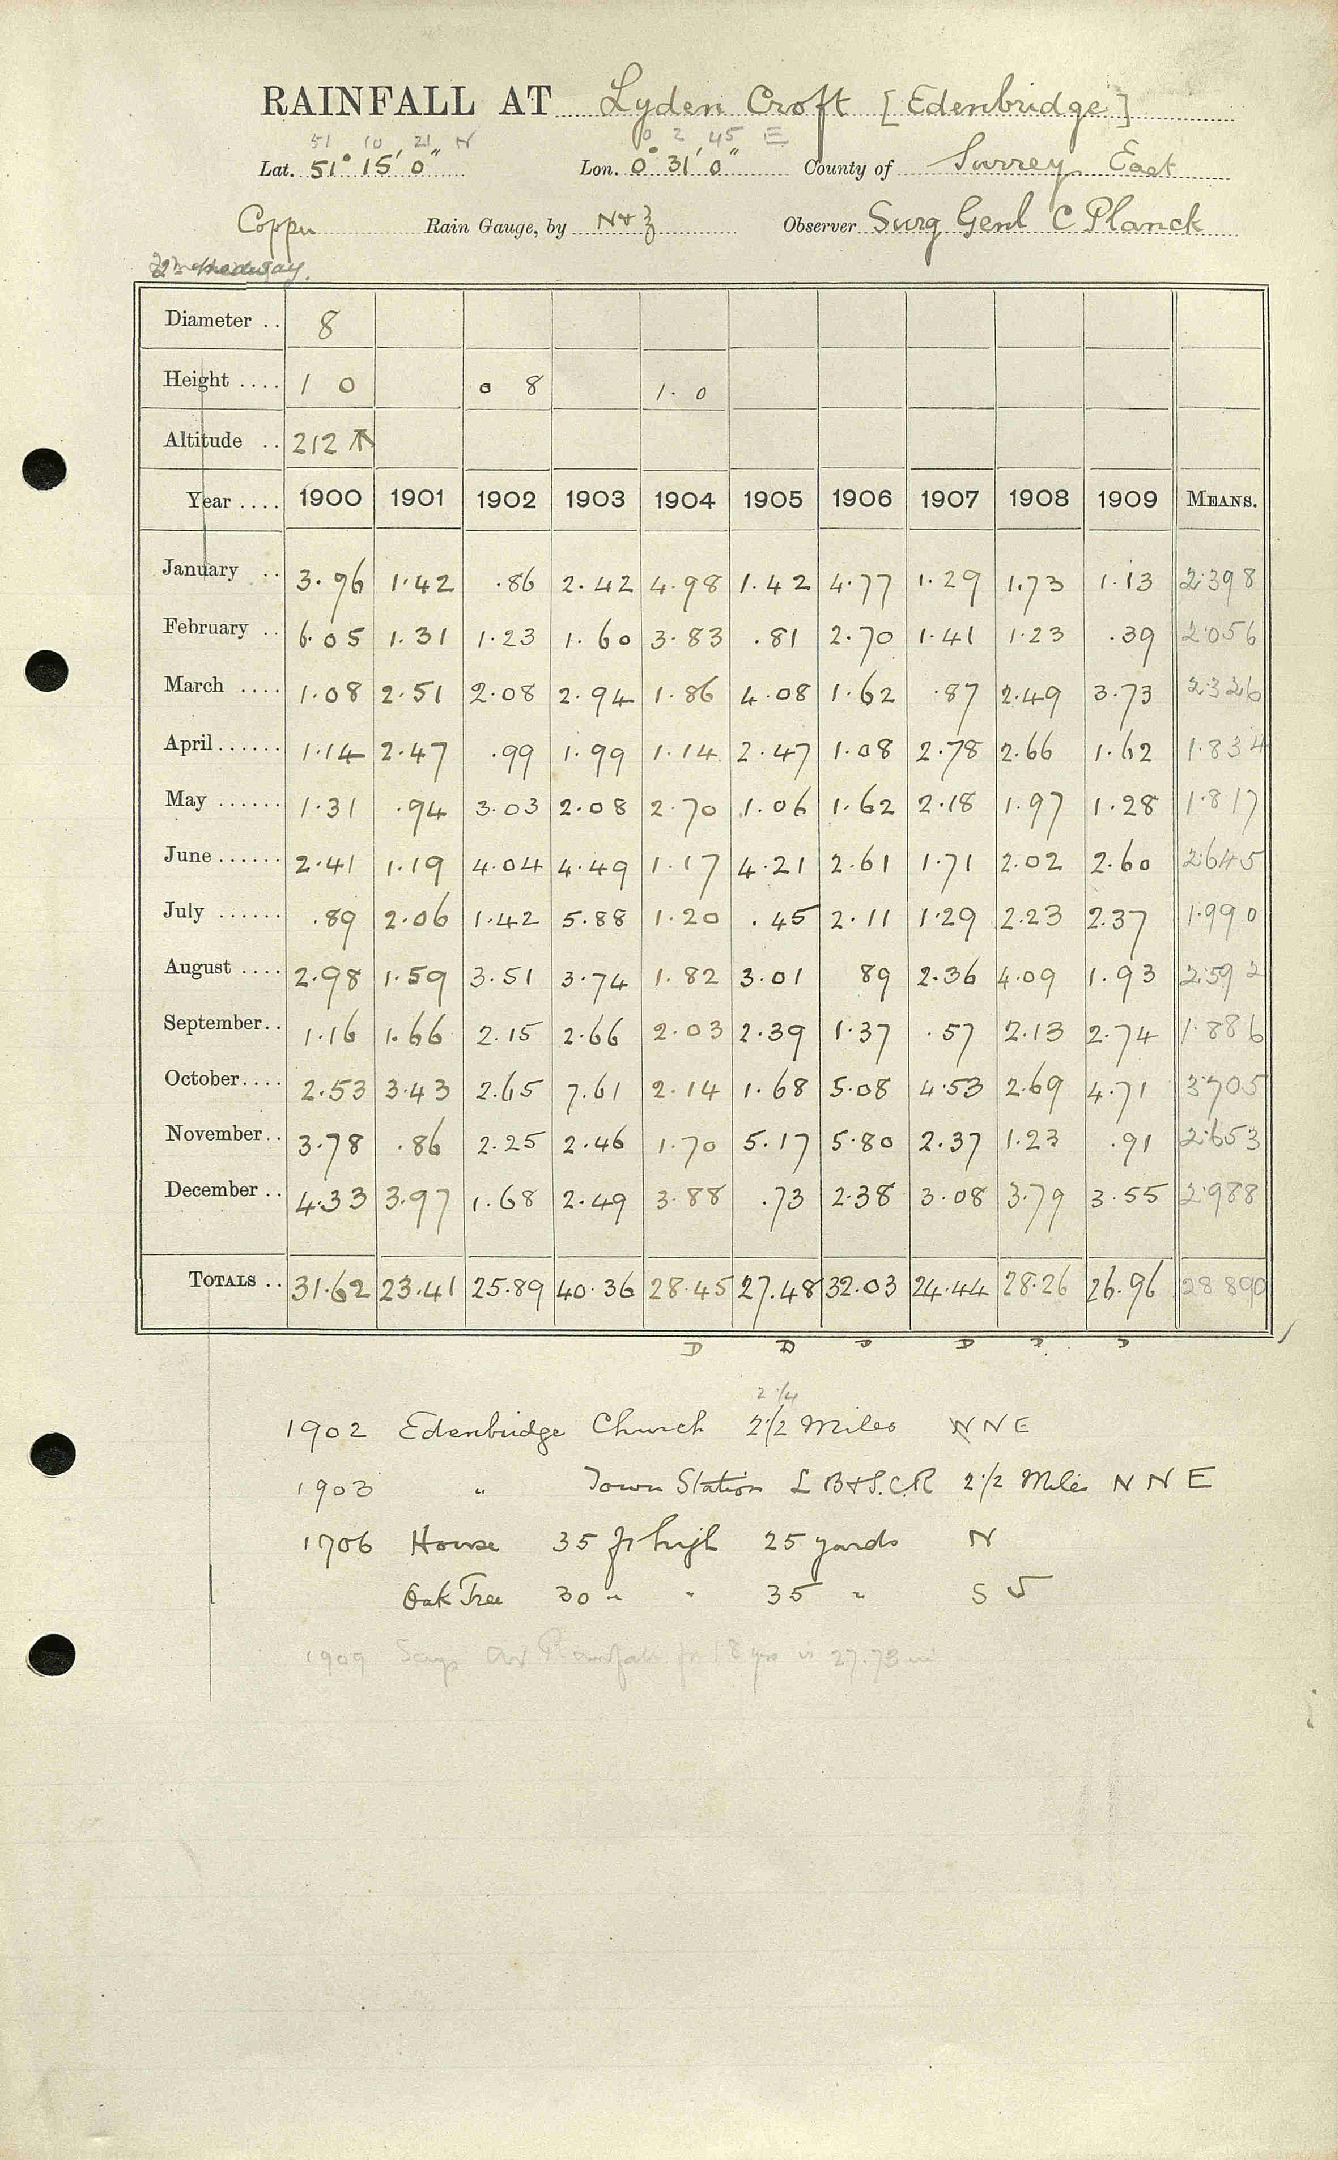 RAINFALL AT Lyden Croft [Edenbridge]
51 10 21 N 0 2 45 E
Lat. 51° 15' 0" Lon. 0° 31' 0" County of Surrey East
Copper Rain Gauge, by N & Z Observer Surg Genl C Planck
Medway.
Diameter .. 8
Height .... 1 0 0 8 1.0
Altitude .. 212
Year .... 1900 1901 1902 1903 1904 1905 1906 1907 1908 1909 MEANS.
January .. 3.96 1.42 .86 2.42 4.98 1.42 4.77 1.29 1.73 1.13 2.398
February .. 6.05 1.31 1.23 1.60 3.83 .81 2.70 1.41 1.23 .39 2.056
March .... 1.08 2.51 2.08 2.94 1.86 4.08 1.62 .87 2.49 3.73 2.326
April ...... 1.14 2.47 .99 1.99 1.14 2.47 1.08 2.78 2.66 1.62 1.834
May ...... 1.31 .94 3.03 2.08 2.70 1.06 1.62 2.18 1.97 1.28 1.817
June ...... 2.41 1.19 4.04 4.49 1.17 4.21 2.61 1.71 2.02 2.60 2.645
July ...... .89 2.06 1.42 5.88 1.20 .45 2.11 1.29 2.23 2.37 1.990
August .... 2.98 1.59 3.51 3.74 1.82 3.01 89 2.36 4.09 1.93 2.592
September.. 1.16 1.66 2.15 2.66 2.03 2.39 1.37 .57 2.13 2.74 1.886
October.... 2.53 3.43 2.65 7.61 2.14 1.68 5.08 4.53 2.69 4.71 3.705
November.. 3.78 .86 2.25 2.46 1.70 5.17 5.80 2.37 1.23 .91 2.653
December .. 4.33 3.97 1.68 2.49 3.88 .73 2.38 3.08 3.79 3.55 2.988
TOTALS .. 31.62 23.41 25.89 40.36 28.45 27.48 32.03 24.44 28.26 26.96 28.890
D D D D D D
2 1/4
1902 Edenbridge Church 2 1/2 Miles NNE
1903 " Town Station L B & S.C.R 2 1/2 Miles N N E
1906 House 35 ft high 25 yards N
Oak Tree 30 " " 35 " S
1909 Says Av Rainfall for 18 yrs is 27.73 in